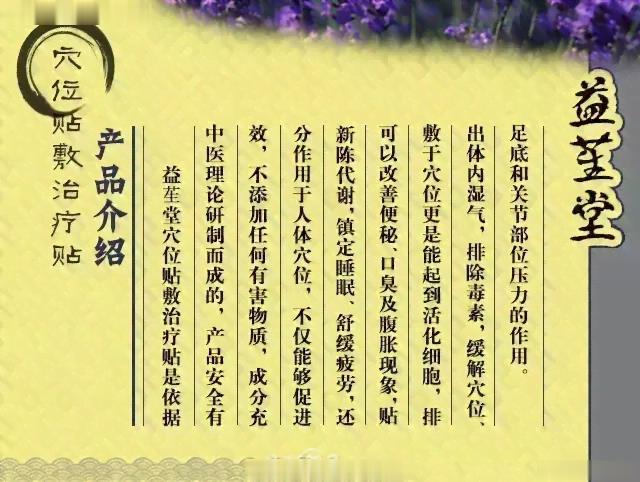 穴位贴敷治疗贴
产品介绍
益苼堂穴位贴敷治疗贴是依据
中医理论研制而成的，产品安全有
效，不添加任何有害物质，成分充
分作用于人体穴位，不仅能够促进
新陈代谢，镇定睡眠、舒缓疲劳，还
可以改善便秘、口臭及腹胀现象，贴
敷于穴位更是能起到活化细胞，排
出体内湿气，排除毒素，缓解穴位、
足底和关节部位压力的作用。
益苼堂